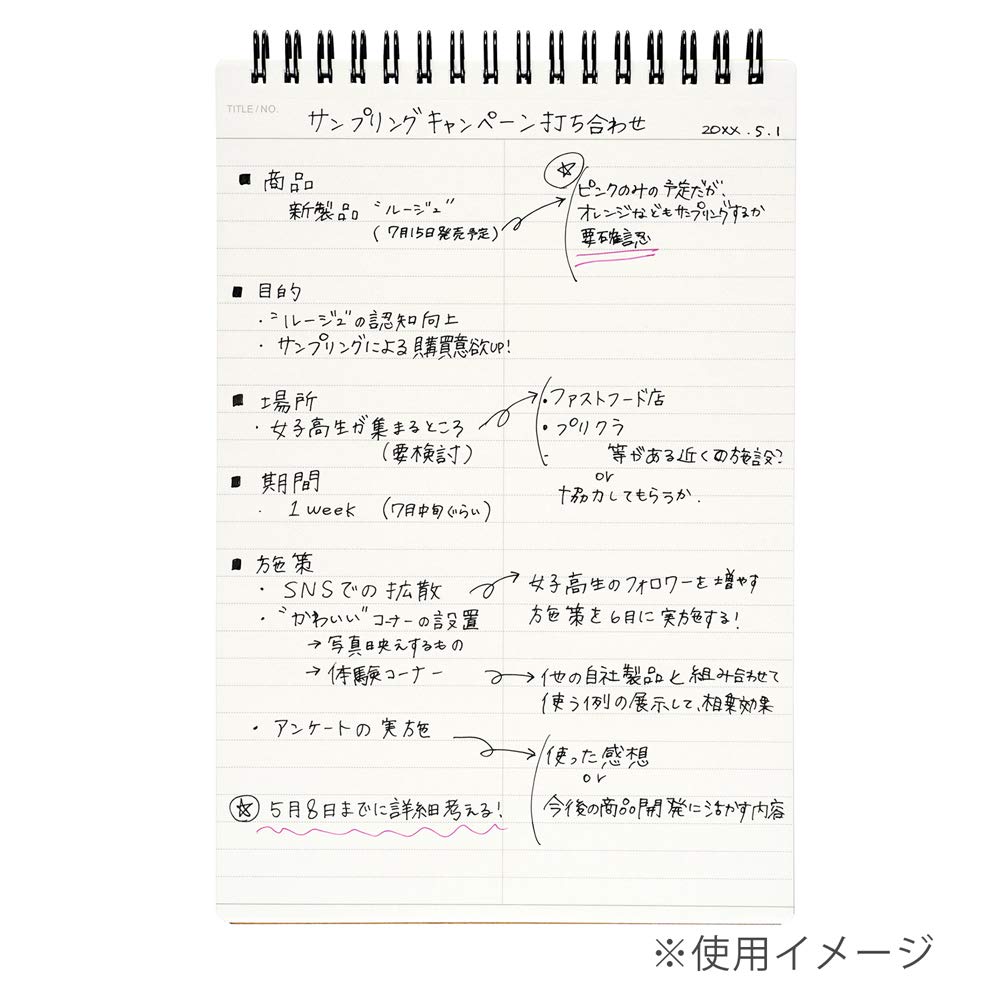 TITLE/NO.
サンプリングキャンペーン打ち合わせ 20XX.5.1
■ 商品
新製品 "ルージュ"
(7月15日発売予定)
☆
ピンクのみの予定だが、
オレンジなどもサンプリングするか
要確認
■ 目的
・"ルージュ"の認知向上
・サンプリングによる購買意欲UP!
■ 場所
・女子高生が集まるところ
(要検討)
・ファストフード店
・プリクラ
等がある近くの施設?
or
協力してもらうか.
■ 期間
・1week (7月中旬ぐらい)
■ 施策
・SNSでの拡散
女子高生のフォロワーを増やす
施策を6月に実施する!
・"かわいい"コーナーの設置
→写真映えするもの
→体験コーナー
他の自社製品と組み合わせて
使う例の展示して、相乗効果
・アンケートの実施
使った感想
or
今後の商品開発に活かす内容
☆ 5月8日までに詳細考える!
※使用イメージ